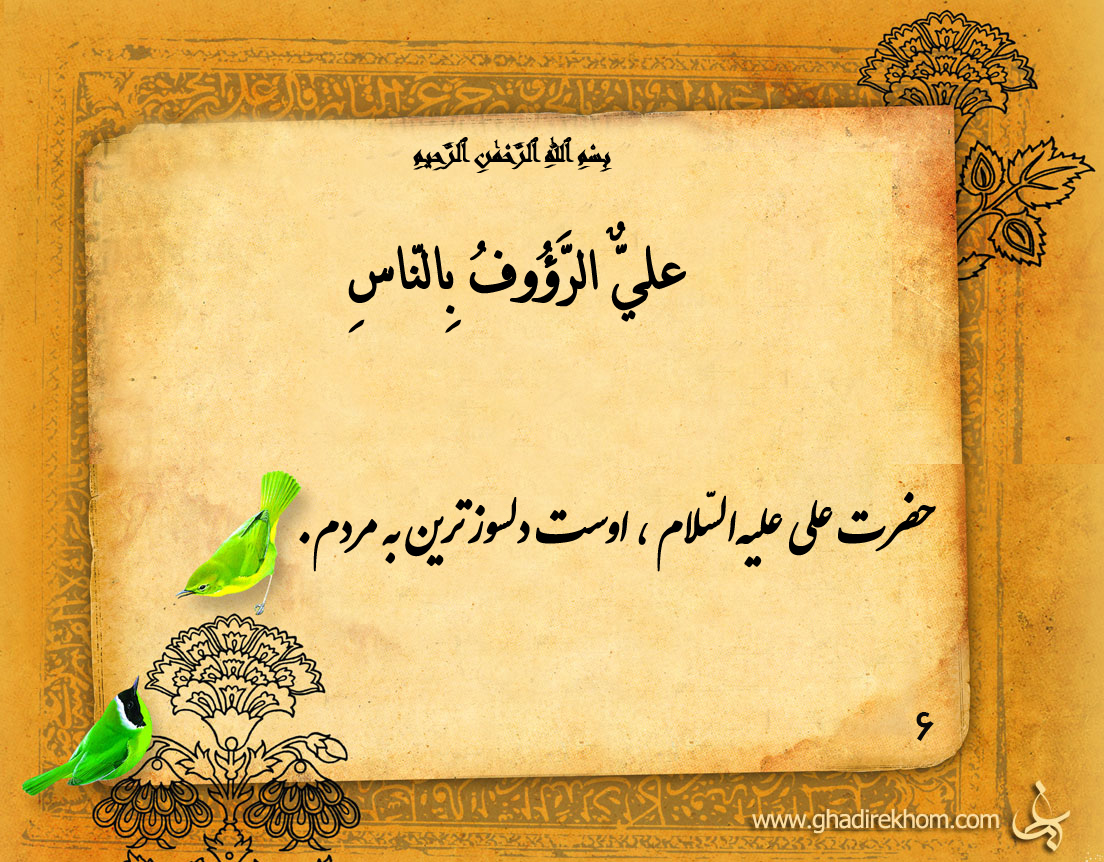 بِسْمِ ٱللَّهِ ٱلرَّحْمَٰنِ ٱلرَّحِيمِ
عليٌّ الرَّؤُوفُ بِالنّاسِ
حضرت علی علیه السّلام ، اوست دلسوزترین به مردم .
۶
www.ghadirekhom.com